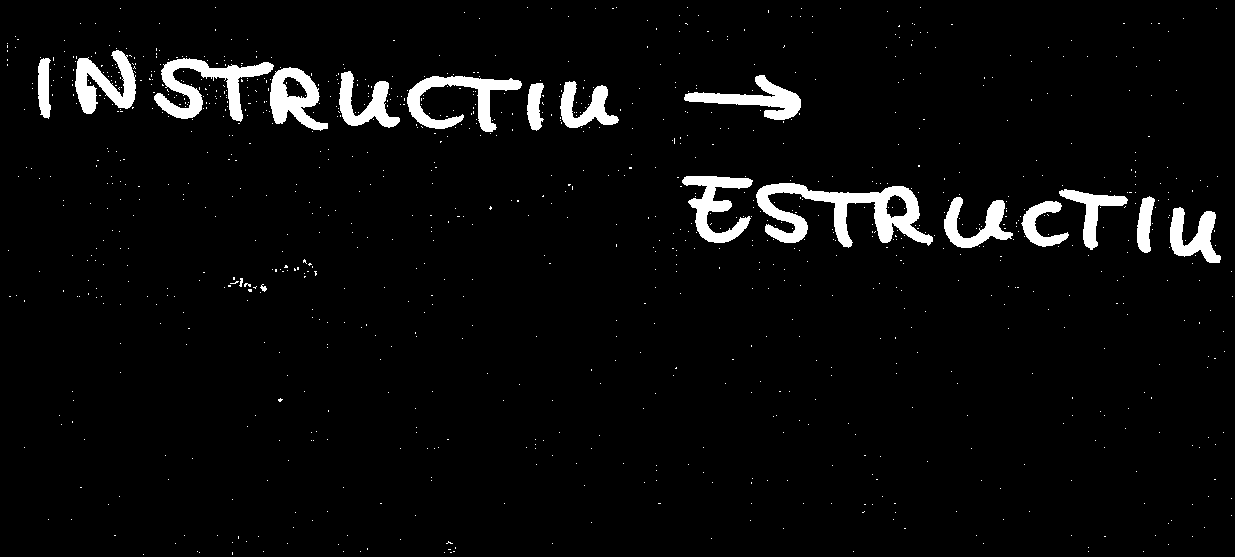 INSTRUCTIU →
ESTRUCTIU